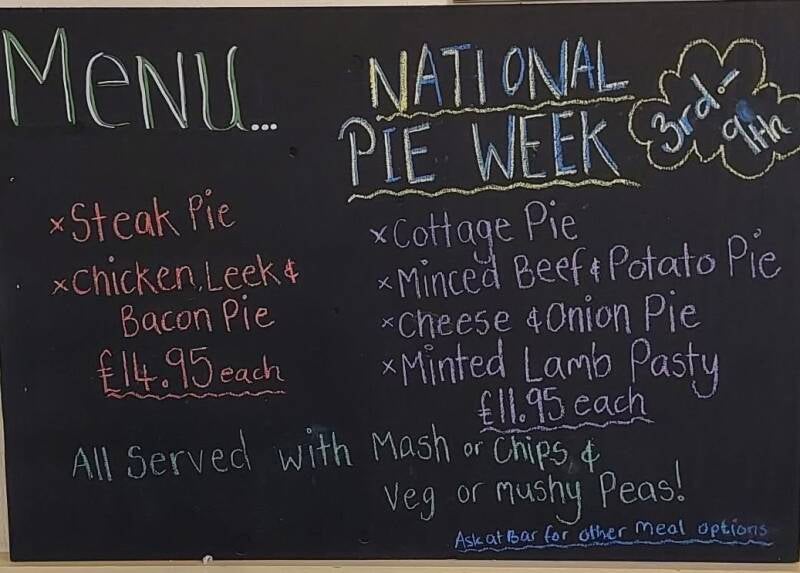 Menu...
NATIONAL
PIE WEEK
3rd-
9th
×Steak Pie
×Chicken, Leek &
Bacon Pie
£14.95 each
×Cottage Pie
×Minced Beef & Potato Pie
×Cheese & Onion Pie
×Minted Lamb Pasty
£11.95 each
All Served with Mash or Chips &
Veg or mushy Peas!
Ask at Bar for other meal options